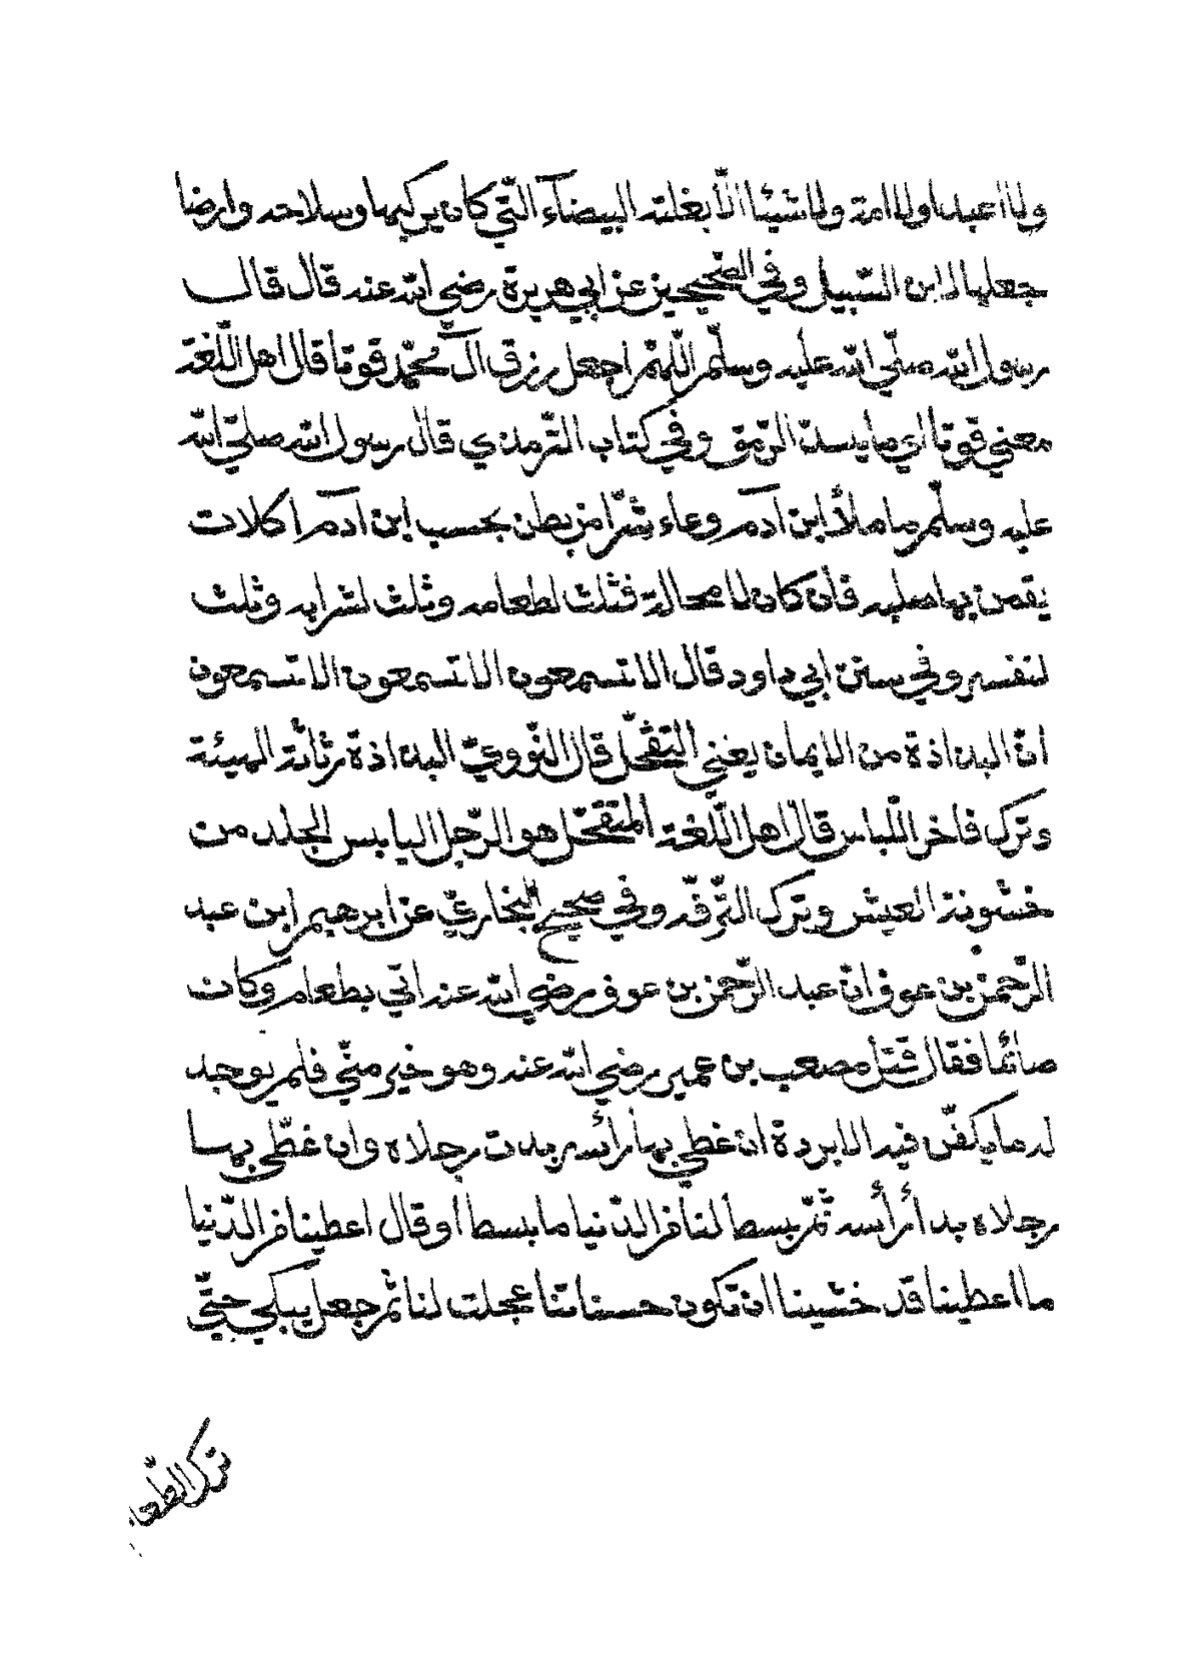 ولا عبدا ولا امة ولا شيئا الّا بغلته البيضآء التّي كان يركبها وسلاحه وارضا
جعلها لابن السّبيل وفي الصّحيحين عن ابي هريرة رضي الله عنه قال قال
رسول الله صلّي الله عليه وسلّم اللّهمّ اجعل رزق آل محمّد قوتا قال اهل اللّغة
معني قوتا اي ما يسدّ الرّمق وفي كتاب التّرمذي قال رسول الله صلّي الله
عليه وسلّم ما ملأ ابن آدم وعاء شرّا من بطن بحسب ابن آدم اكلات
يقمن بها صلبه فان كان لا محالة فثلث لطعامه وثلث لشرابه وثلث
لنفسه وفي سنن ابي داود قال الا تسمعون الا تسمعون الا تسمعون
انّ البذاذة من الايمان يعني التّقحّل قال النّوويّ البذاذة رثاثة الهيئة
وترك فاخر اللّباس قال اهل اللّغة المتقحّل هو الرّجل اليابس الجلد من
خشونة العيش وترك التّرفّه وفي صحيح البخاريّ عن ابرهيم ابن عبد
الرّحمن بن عوف انّ عبد الرّحمن بن عوف رضي الله عنه اتي بطعام وكان
صائما فقال قتل مصعب بن عمير رضي الله عنه وهو خير منّي فلم يوجد
له ما يكفّن فيه الا بردة ان غطي بها رأسه بدت رجلاه وان غطّي بها
رجلاه بدا رأسه ثمّ بسط لنا من الدّنيا ما بسط او قال اعطينا من الدّنيا
ما اعطينا قد خشينا ان تكون حسناتنا عجلت لنا ثمّ جعل يبكي حتّي
ترك الطّعا